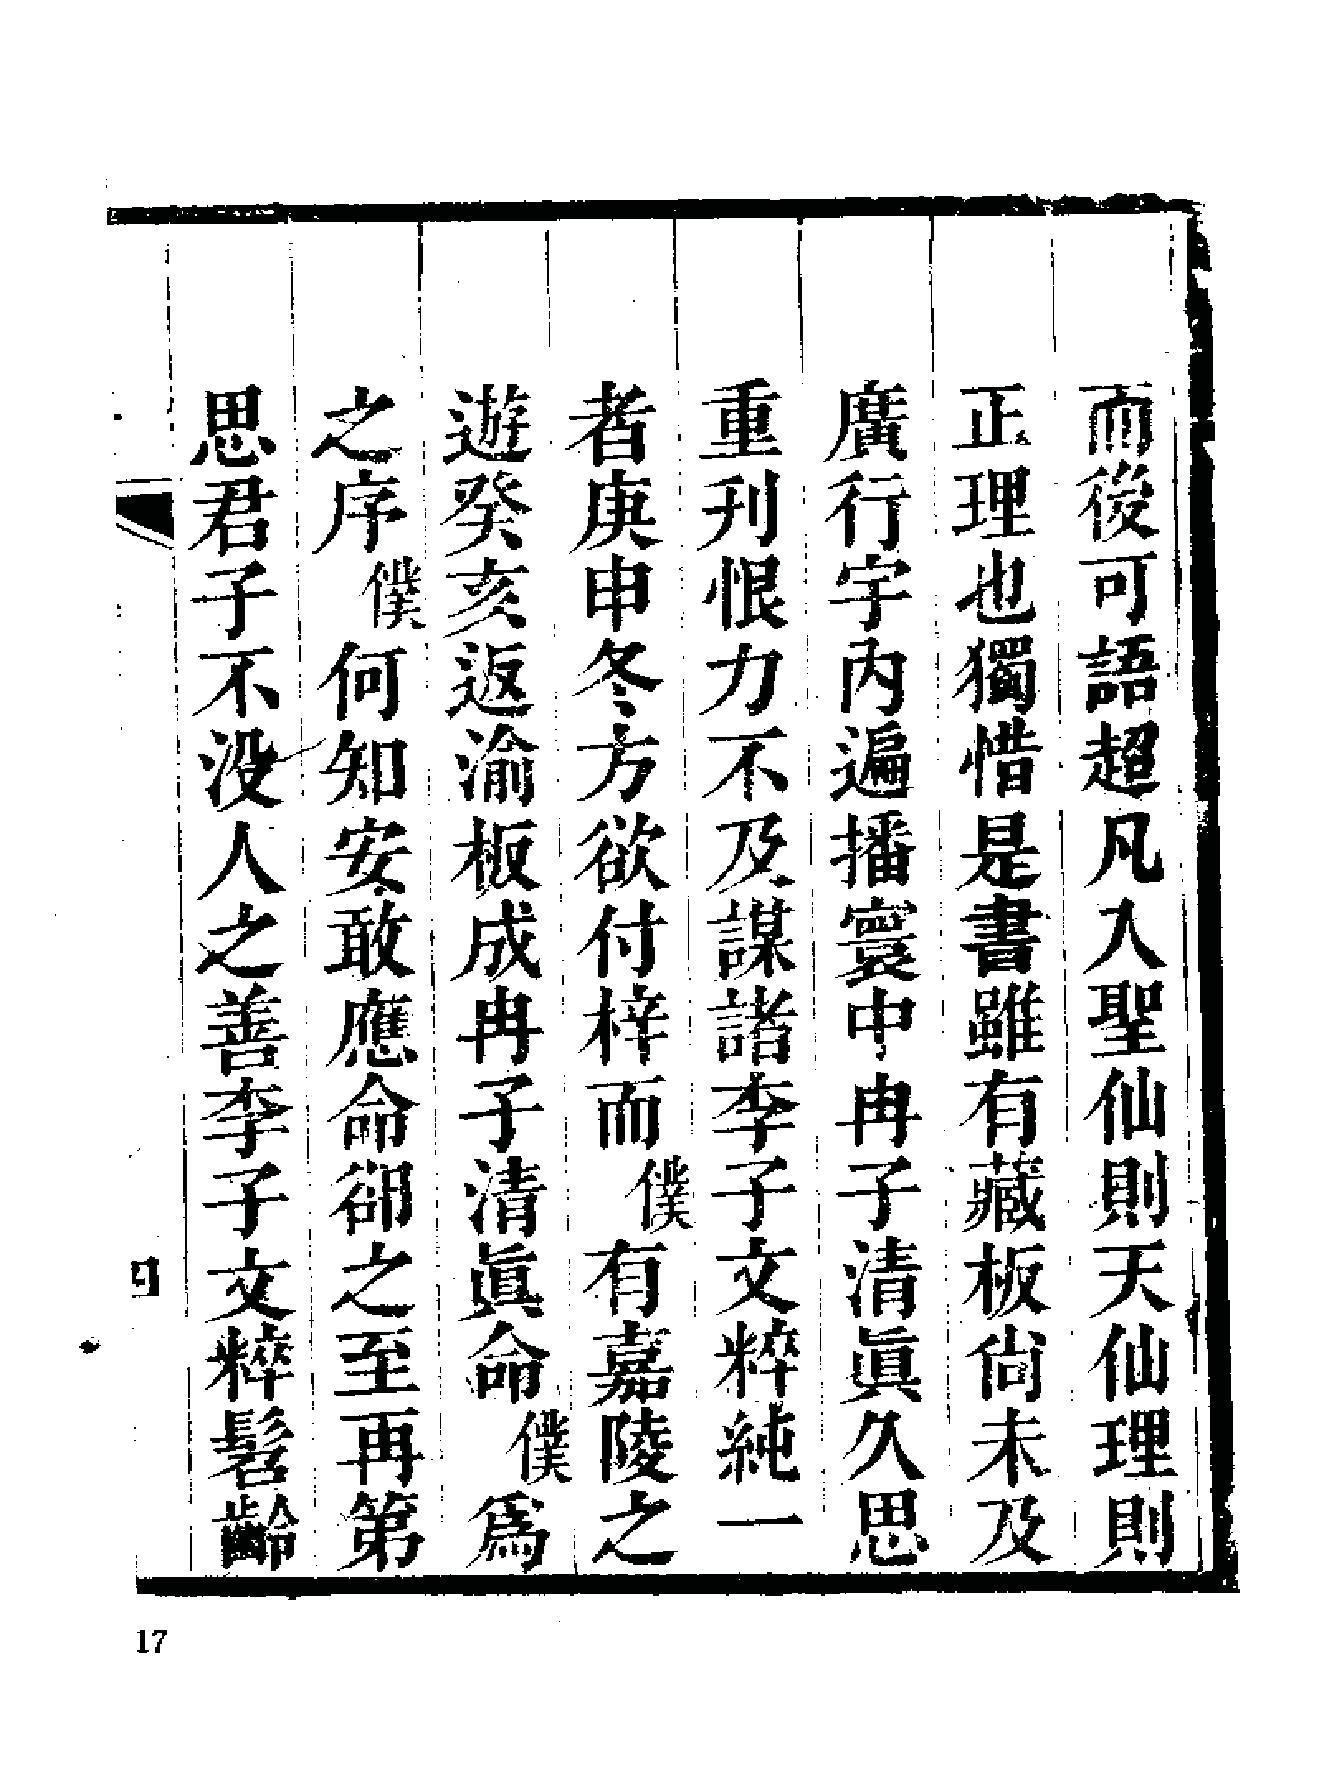 而後可語超凡入聖仙則天仙理則
正理也獨惜是書雖有藏板尚未及
廣行宇內遍播寰中冉子清眞久思
重刊恨力不及謀諸李子文粹純一
者庚申冬方欲付梓而僕有嘉陵之
遊癸亥返渝板成冉子清眞命僕爲
之序僕何知安敢應命卻之至再第
思君子不没人之善李子文粹髫齡
四
17